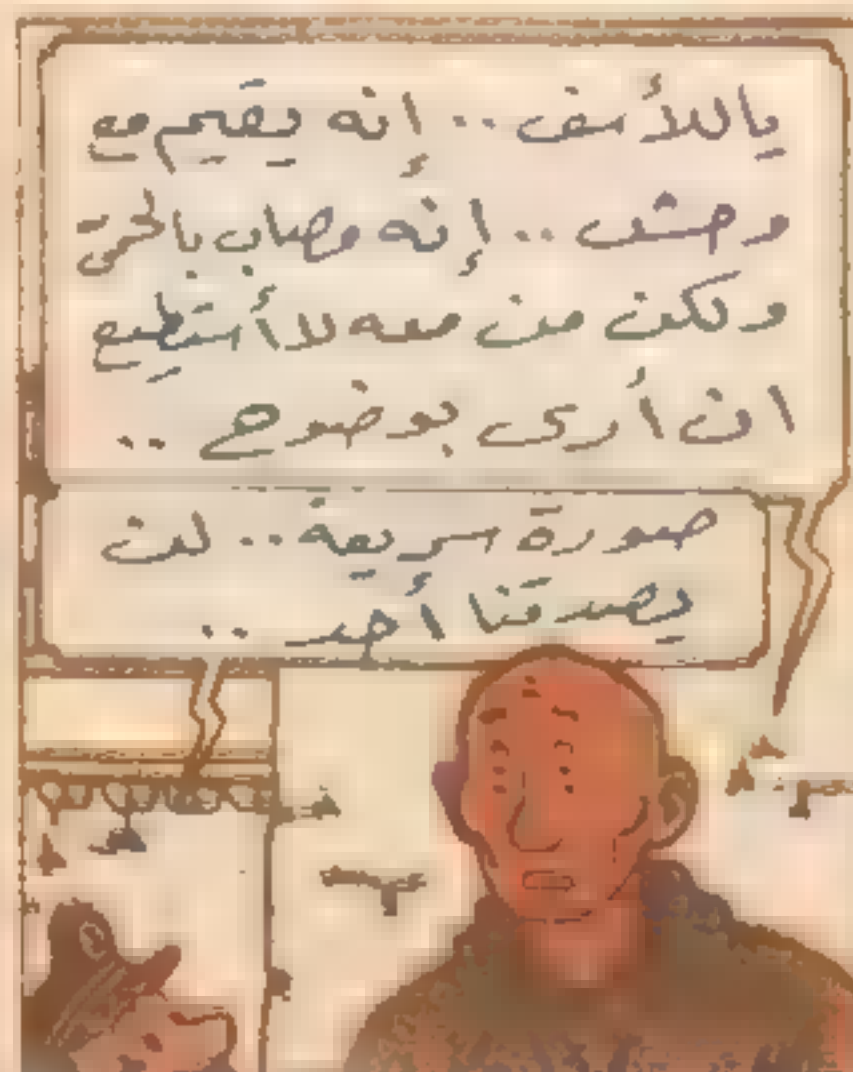 ياللأسف .. إنه يقيم مع
وحش .. إنه مصاب بالحرق
ولكن من معه لا أستطيع
ان أرى بوضوح ..
صورة سريعة .. لن
يصدقنا أحد ..